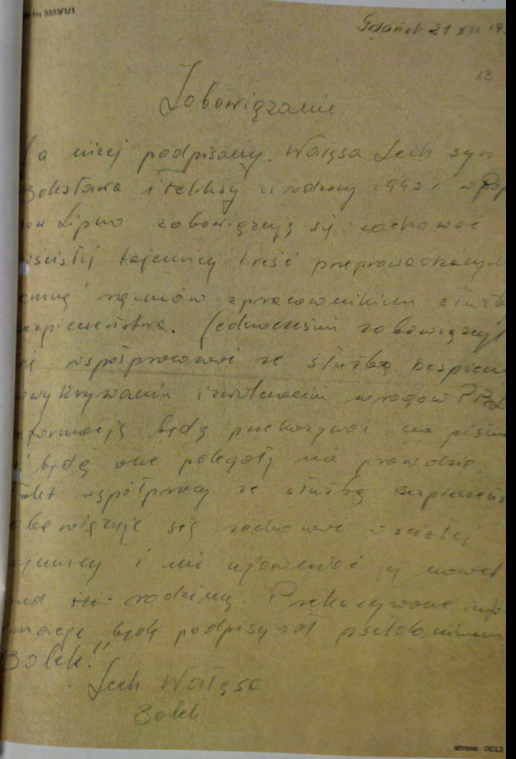 3333/1/1
Gdańsk 21 XII 19
13
Zobowiązanie
Ja niżej podpisany Wałęsa Lech syn
Bolesława i Feliksy urodzony 1943 r w Pop
ow Lipno zobowiązuję się zachować
w ścisłej tajemnicy treść przeprowadzanych
zemną rozmów zpracownikiem służb
ezpieczeństwa. Jednocześnie zobowiązuję
się współpracować ze służbą bezpiecze
wykrywaniu i zwalczaniu wrogów PRL
nformacją będę przekazywać na piśmi
i będą one polegały na prawdzie.
Fakt współpracy ze służbą Bezpieczeńs
obowiązuję się zachować w ścisłej
ajemnicy i nie ujawniać jej nawet
zed rodziną. Przekazywane info
rmacje będę podpisywał pseudonimem
Bolek."
Lech Wałęsa
Bolek
strona 0012